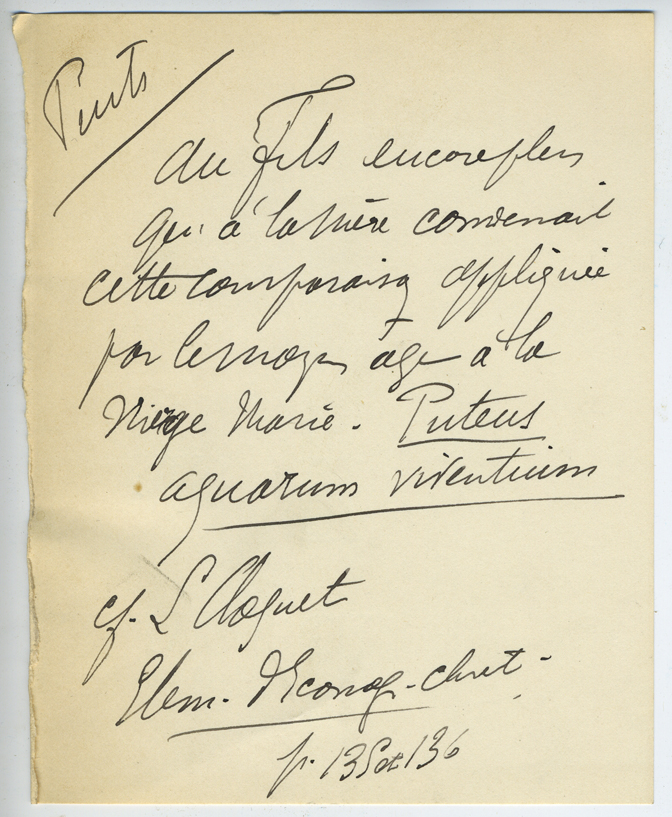 Puits
Au Fils encore plus
qu'à la Mère convenait
cette comparaison appliquée
par le moyen âge à la
Vierge Marie. Puteus
aquarum viventium
cf. L Cloquet
Elem. d'Iconog. chret.
p. 135 et 136